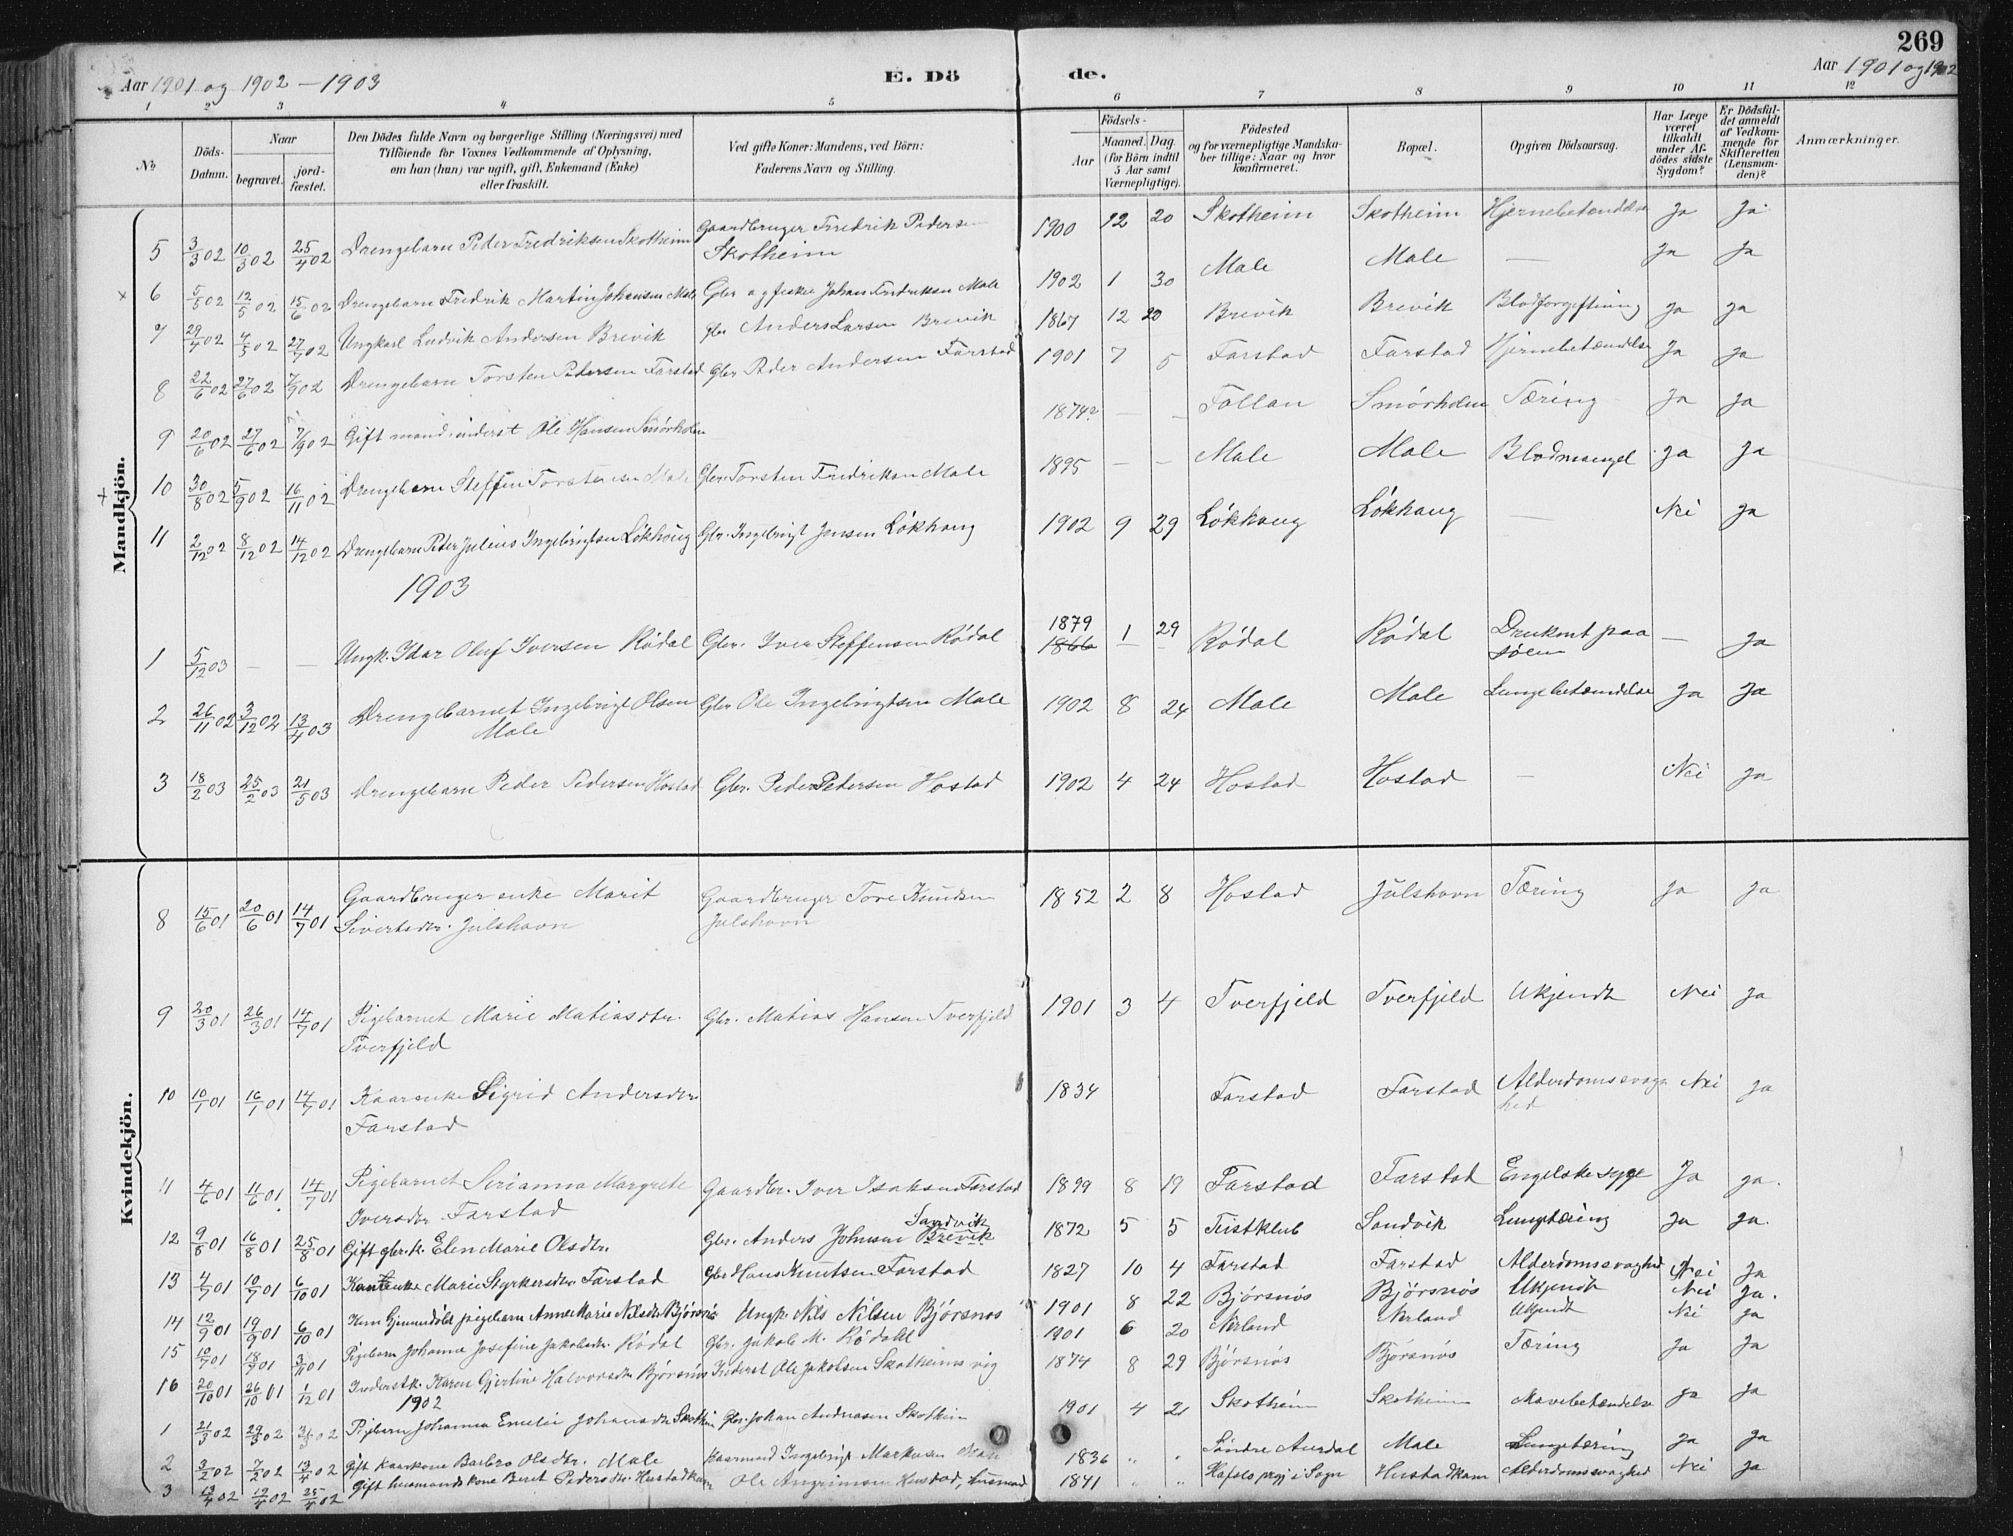 269
Aar 1901 og 1902 – 1903
E. Dö de.
Aar 1901 og 1902
1 2 3 4 5 6 7 8 9 10 11 12
No.
Döds-Datum.
Naar
begravet.
jord-fæstet.
Den Dödes fulde Navn og borgerlige Stilling (Næringsvei) med
Tilföiende for Voxnes Vedkommende af Oplysning,
om han (hun) var ugift, gift, Enkemand (Enke)
eller fraskilt.
Ved gifte Koner: Mandens, ved Börn:
Faderens Navn og Stilling.
Födsels-
Aar
Maaned. Dag.
(for Börn indtil
5 Aar samt
Værnepligtige).
Födested
og for værnepligtige Mandska-
ber tillige: Naar og hvor
konfirmeret.
Bopæl.
Opgiven Dödsaarsag.
Har Læge
været
tilkaldt
under Af-
dödes sidste
Sygdom?
Er Dödsfal-
det anmeldt
af Vedkom-
mende for
Skifteretten
(Lensman-
den)?
Anmærkninger.
Mandkjön.
5 3/3 02 10/3 02 25/4 02 Drengebarn Peder Fredriksen Skotheim Gaardbruger Fredrik Pedersen Skotheim 1900 12 20 Skotheim Skotheim Hjernebetændelse Ja Ja
6 5/5 02 12/5 02 15/6 02 Drengebarn Fredrik Martin Johansen Male Gbr og fisker Johan Fredriksen Male 1902 1 30 Male Male — Ja Ja
7 29/4 02 4/5 02 27/7 02 Ungkarl Ludvik Andersen Brevik gbr Anders Larsen Brevik 1867 12 20 Brevik Brevik Blodforgiftning Ja ja
8 22/6 02 27/6 02 7/9 02 Drengebarn Torsten Pedersen Farstad Gbr Peder Andersen Farstad 1901 7 5 Farstad Farstad Hjernebetændelse Ja ja
9 20/6 02 27/6 02 7/9 02 Gift mand inderst Ole Hansen Smörholm 1874? — — Follan Smörholm Tæring Ja ja
10 30/8 02 5/9 02 16/11 02 Drengebarn Steffen Torstensen Male Gbr. Torsten Fredriksen Male 1895 — — Male Male Blodmangel ja ja
11 2/12 02 8/12 02 14/12 02 Drengebarn Peder Julius Ingebrigtsen Lökhaug Gbr. Ingebrigt Jensen Lökhaug 1902 9 29 Lökhaug Lökhaug — Nei ja
1903
1 5/12 03 — — Ungk. Idar Oluf Iversen Rödal Gbr. Iver Steffensen Rödal 1879 1866 1 29 Rödal Rödal Druknet paa söen — ja
2 26/11 02 3/12 02 13/4 03 Drengebarnet Ingebrigt Olsen Male Gbr Ole Ingebrigtsen Male 1902 8 24 Male Male Lungebetændelse Ja Ja
3 18/2 03 25/2 03 21/5 03 Drengebarn Peder Pedersen Hostad Gbr. Peder Pedersen Hostad 1902 4 24 Hostad Hostad — Nei ja
Kvindekjön.
8 15/6 01 20/6 01 14/7 01 Gaardbruger enke Marit Sivertsdtr. Julshavn Gaardbruger Tore Knudsen Julshavn 1852 2 8 Hostad Julshavn Tæring ja ja
9 20/3 01 26/3 01 14/7 01 Pigebarnet Marie Matiasdtr. Tverfjeld Gbr. Matias Hansen Tverfjeld 1901 3 4 Tverfjeld Tverfjeld Ukjendt Nei ja
10 10/1 01 16/1 01 14/7 01 Kaarenke Sigrid Andersdtr. Farstad 1834 Farstad Farstad Alderdomssvag-hed Nei ja
11 4/6 01 11/6 01 14/7 01 Pigebarnet Serianna Margrete Iversdtr Farstad Gaardbr. Iver Isaksen Farstad 1899 8 19 Farstad Farstad Engelske syge Ja ja.
12 9/8 01 16/8 01 25/8 01 Gift gbr. k. Elen Marie Olsdtr. Gbr. Anders Johnsen Brevik Sandvik 1872 5 5 Teistklub Sandvik Lungetæring ja ja.
13 4/7 01 10/7 01 6/10 01 Kaarenke Marie Styrkersdtr Farstad Gbr Hans Knutsen Farstad 1827 10 4 Farstad Farstad Alderdomssvaghed Nei Ja
14 12/9 01 19/9 01 6/10 01 pigebarn Anne Marie Nilsdtr Björsnös Ungk. Nils Nilsen Björsnos 1901 8 22 Björsnös Björsnös Ukjendt Nei ja.
15 10/7 01 Pigebarn Johanna Josefine Jakobsdtr. Rödal Gbr. Jakob M. Rödahl 1901 6 20 Nerland Nerland Ukjendt Nei ja
16 20/10 01 26/10 01 1/12 01 Inderstk. Karen Gjertine Halvorsdtr Björsnös Inderst Ole Jakobsen Skotheimsvig 1874 8 29 Björsnös Björsnös Tæring Ja Ja
1902
1 21/3 02 29/3 02 Pigebarn Johanna Emelie Johansdtr Skotheim Gbr. Johan Andreasen Skotheim 1901 4 21 Skotheim Skotheim Mavebetændelse ja Ja
2 3/2 02 7/2 02 13/4 02 Gift kaarkone Barbro Olsdtr. Male Kaarmand Ingebrigt Markusen Male 1836 " " Söndre Aurdal Male Lungetæring ja ja
3 13/4 02 19/4 02 25/4 02 Gift husmandskone Beret Pedersdtr. Hustadkam Ole Angrimsen Hustad, husmand 1841 " " Hafslo prgj i Sogn Hustadkam Alderdomssvaghed Nei Ja